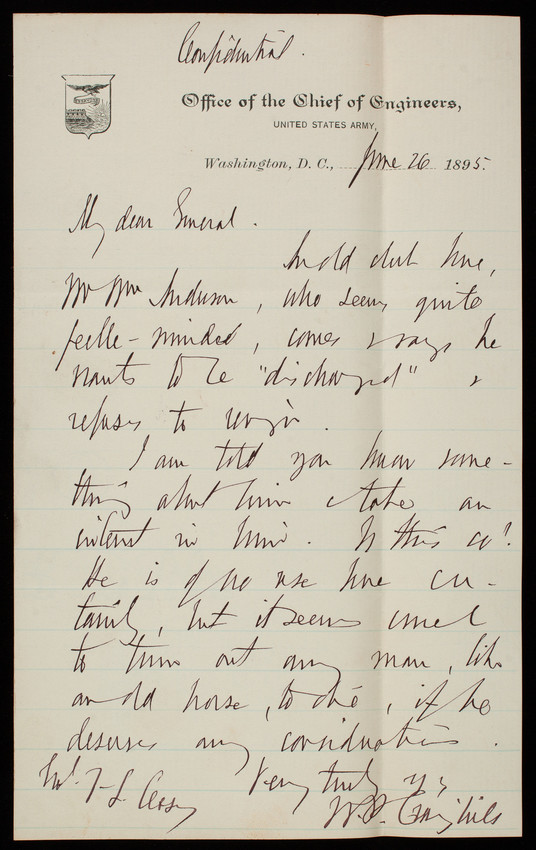 Confidential.
Office of the Chief of Engineers,
UNITED STATES ARMY,
Washington, D. C., June 26 1895.
My dear General.
An old clerk here,
Mr Wm Anderson, who seems quite
feeble-minded, comes & says he
wants to be "discharged" &
refuses to resign.
I am told you know some-
thing about him & take an
interest in him. Is this so?
He is of no use here cer-
tainly, but it seems cruel
to turn out any man, like
an old horse, to die, if he
deserves any consideration.
Very truly yrs
Genl. T. L. Casey
W. P. Craighill